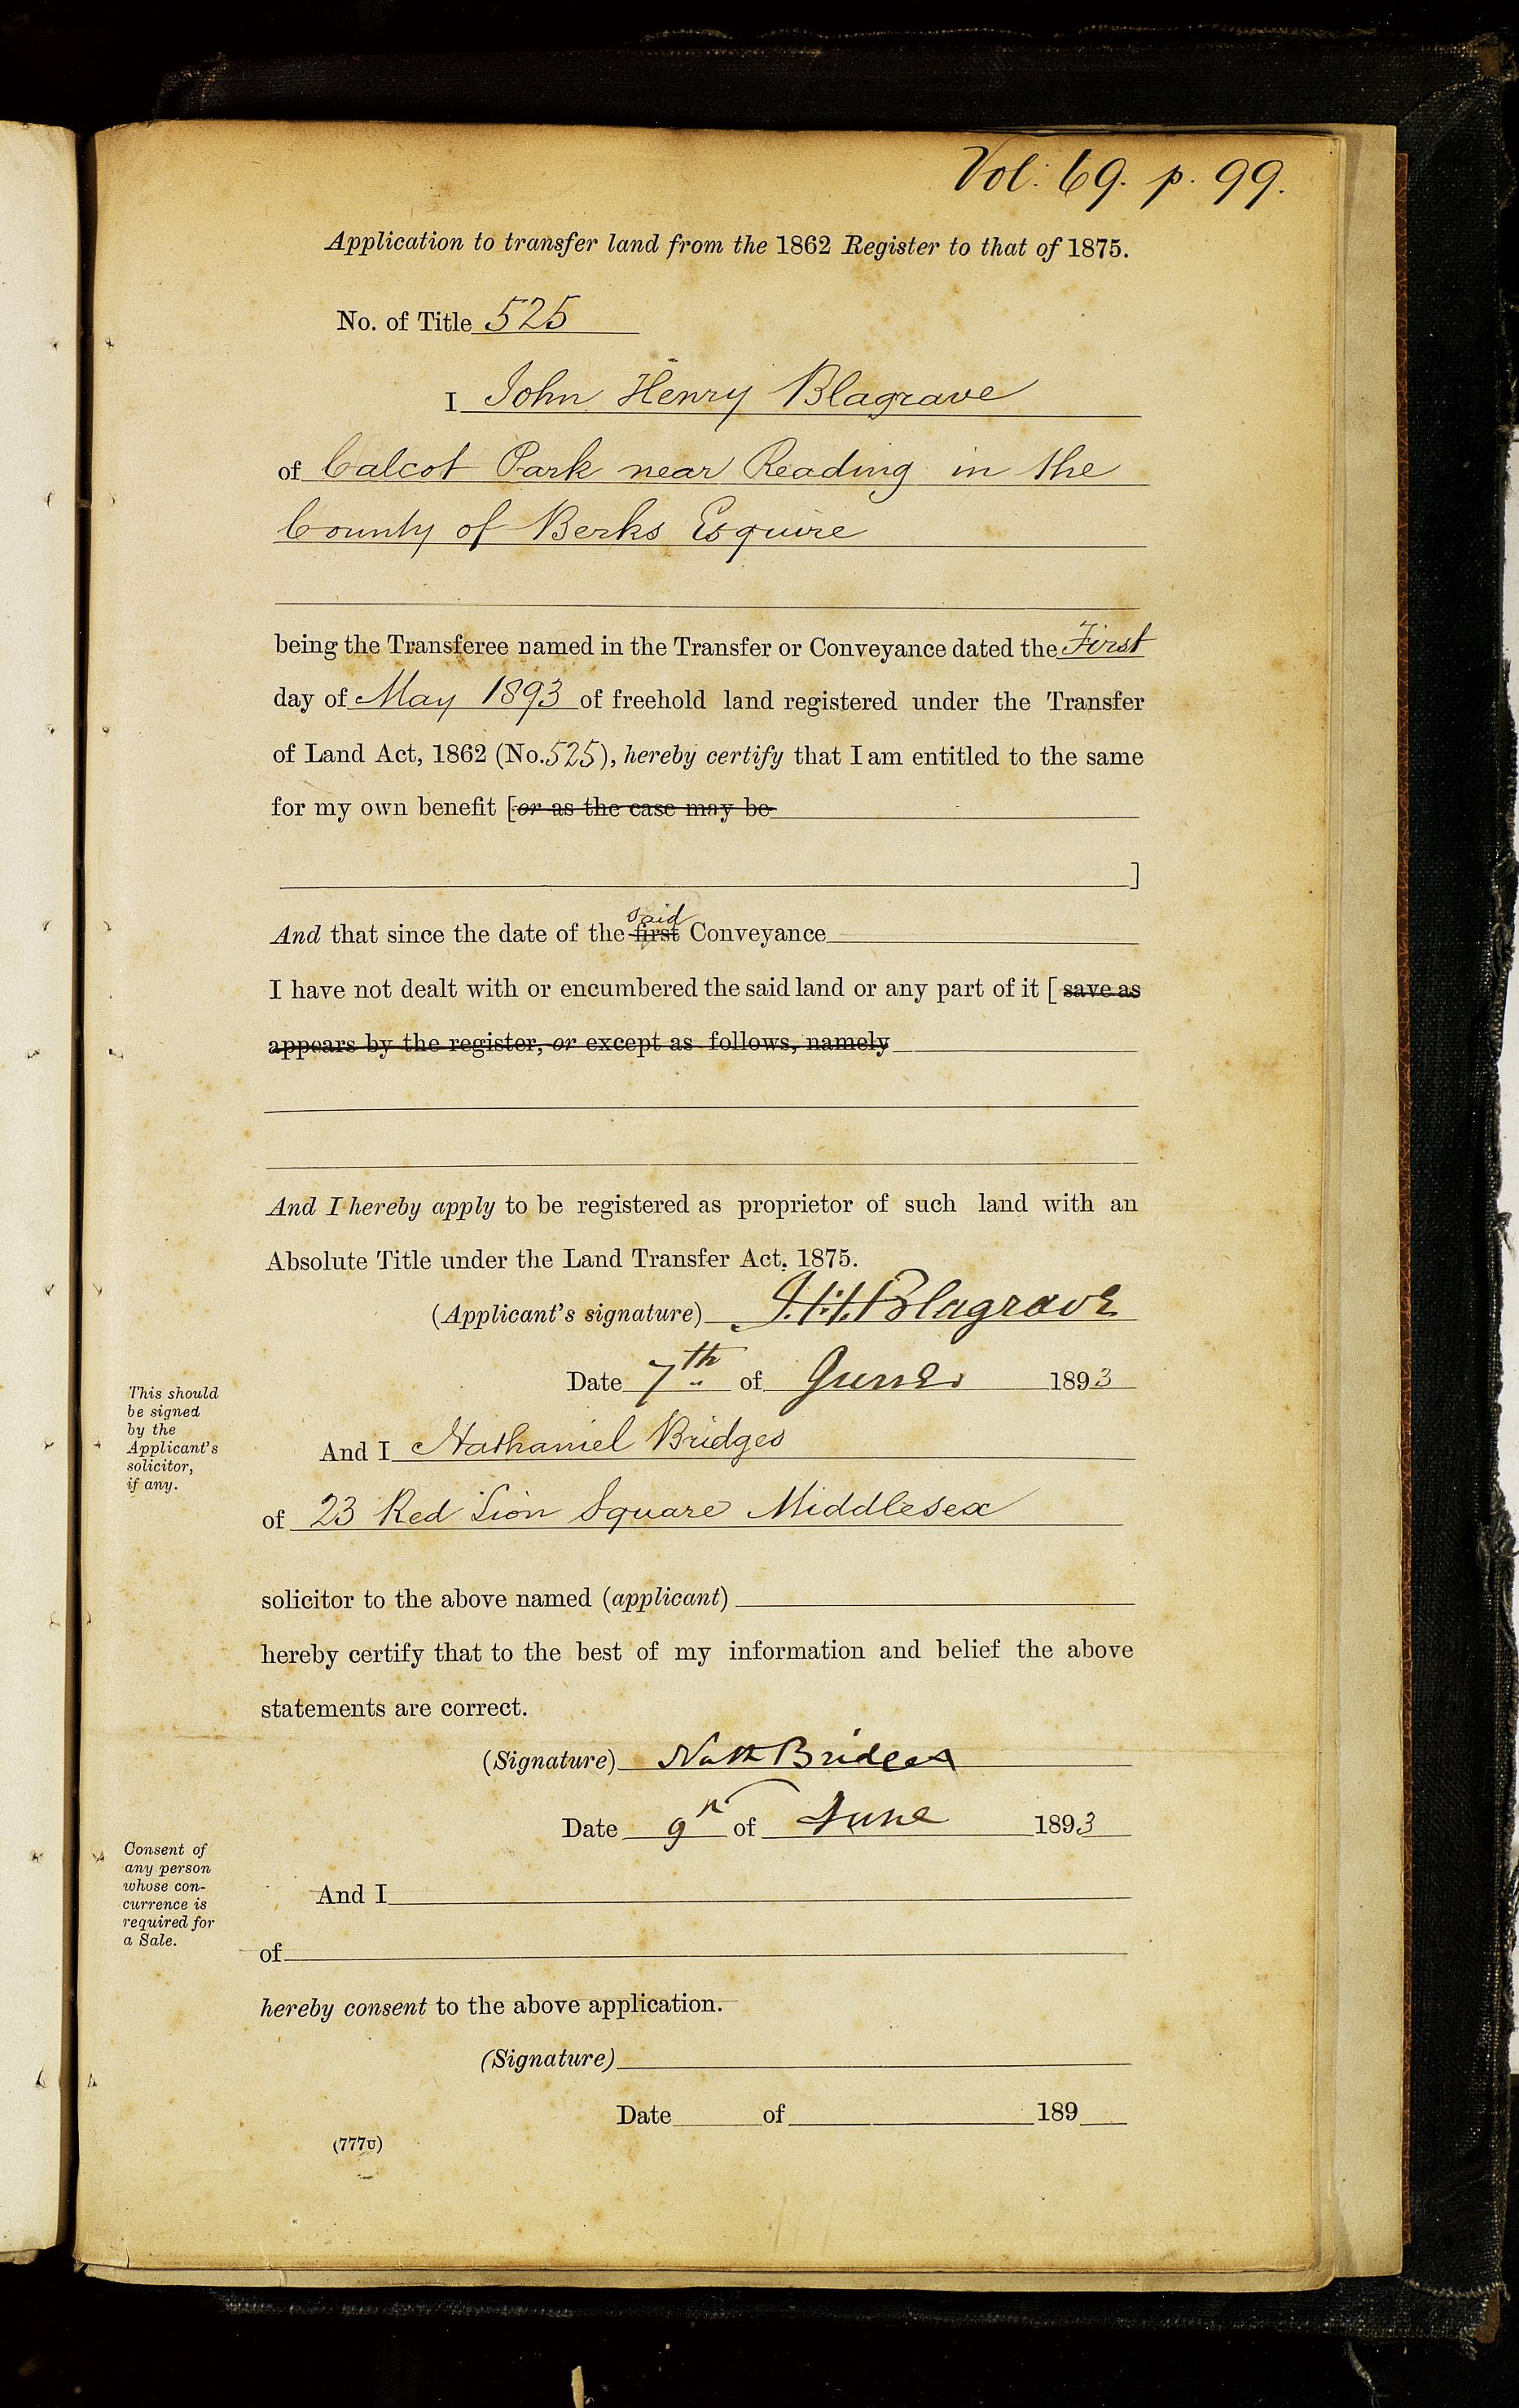 Vol. 69. p. 99.
Application to transfer land from the 1862 Register to that of 1875.
No. of Title 525
I John Henry Blagrave
of Calcot Park near Reading in the
County of Berks Esquire
being the Transferee named in the Transfer or Conveyance dated the First
day of May 1893 of freehold land registered under the Transfer
of Land Act, 1862 (No. 525), hereby certify that I am entitled to the same
for my own benefit [or as the case may be
]
said
And that since the date of the first Conveyance
I have not dealt with or encumbered the said land or any part of it [ save as
appears by the register, or except as follows, namely
And I hereby apply to be registered as proprietor of such land with an
Absolute Title under the Land Transfer Act, 1875.
(Applicant's signature) J. H. Blagrave
Date 7th of June 1893
This should
be signed
by the
Applicant's
solicitor,
if any.
And I Nathaniel Bridges
of 23 Red Lion Square Middlesex
solicitor to the above named (applicant)
hereby certify that to the best of my information and belief the above
statements are correct.
(Signature) Nath Bridges
Date 9th of June 1893
Consent of
any person
whose con-
currence is
required for
a Sale.
And I
of
hereby consent to the above application.
(Signature)
Date of 189
(777U)